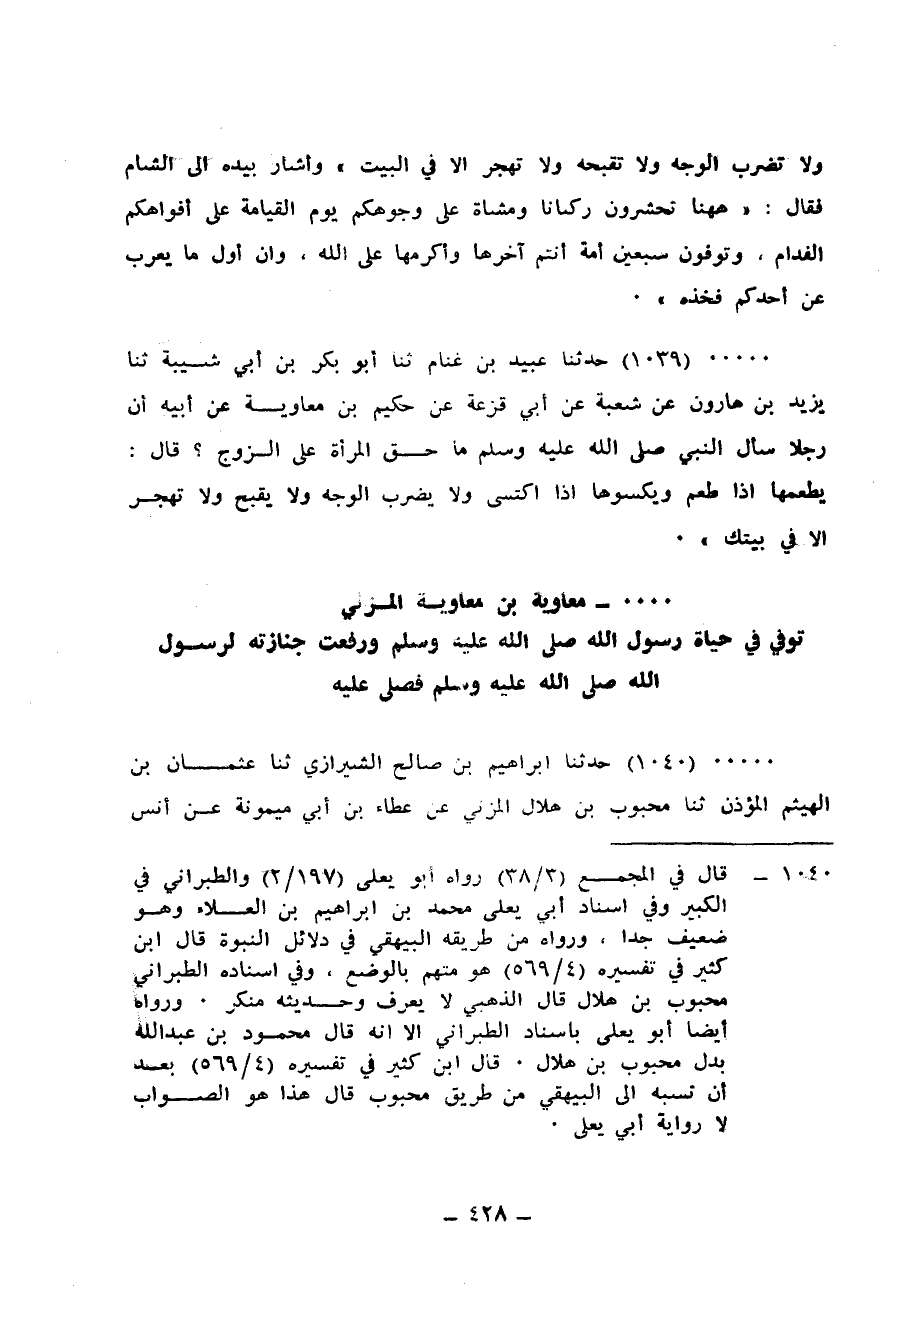 ولا تضرب الوجه ولا تقبحه ولا تهجر الا في البيت » وأشار بيده الى الشام
فقال : « ههنا تحشرون ركبانا ومشاة على وجوهكم يوم القيامة على أفواهكم
الفدام ، وتوفون سبعين أمة أنتم آخرها وأكرمها على الله ، وان أول ما يعرب
عن أحدكم فخذه » ٠
٠٠٠٠٠ (١٠٣٩) حدثنا عبيد بن غنام ثنا أبو بكر بن أبي شيبة ثنا
يزيد بن هارون عن شعبة عن أبي قزعة عن حكيم بن معاوية عن أبيه أن
رجلا سأل النبي صلى الله عليه وسلم ما حق المرأة على الزوج ؟ قال :
يطعمها اذا طعم ويكسوها اذا اكتسى ولا يضرب الوجه ولا يقبح ولا تهجر
الا في بيتك » ٠
٠٠٠٠ ـ معاوية بن معاوية المزني
توفي في حياة رسول الله صلى الله عليه وسلم ورفعت جنازته لرسول
الله صلى الله عليه وسلم فصلى عليه
٠٠٠٠٠ (١٠٤٠) حدثنا ابراهيم بن صالح الشيرازي ثنا عثمان بن
الهيثم المؤذن ثنا محبوب بن هلال المزني عن عطاء بن أبي ميمونة عن أنس
١٠٤٠ ـ قال في المجمع (٣٨/٣) رواه أبو يعلى (٢/١٩٧) والطبراني في
الكبير وفي اسناد أبي يعلى محمد بن ابراهيم بن العلاء وهو
ضعيف جدا ، ورواه من طريقه البيهقي في دلائل النبوة قال ابن
كثير في تفسيره (٥٦٩/٤) هو متهم بالوضع ، وفي اسناده الطبراني
محبوب بن هلال قال الذهبي لا يعرف وحديثه منكر ٠ ورواه
أيضا أبو يعلى باسناد الطبراني الا انه قال محمود بن عبدالله
بدل محبوب بن هلال ٠ قال ابن كثير في تفسيره (٥٦٩/٤) بعد
أن نسبه الى البيهقي من طريق محبوب قال هذا هو الصواب
لا رواية أبي يعلى ٠
ـ ٤٢٨ ـ